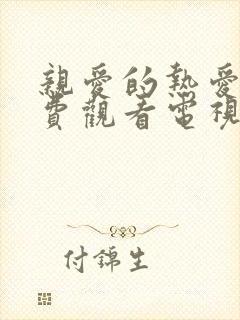 親愛的熱愛
費觀看電視
付錦生